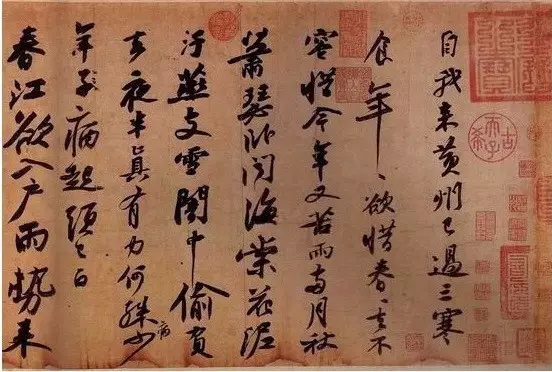 自我來黃州已過三寒
食年〻欲惜春〻去不
容惜今年又苦雨兩月秋
蕭瑟卧聞海棠花泥
汙燕支雪闇中偷負
去夜半真有力何殊少病
年子病起頭已白
春江欲入戶雨勢來
古希天子